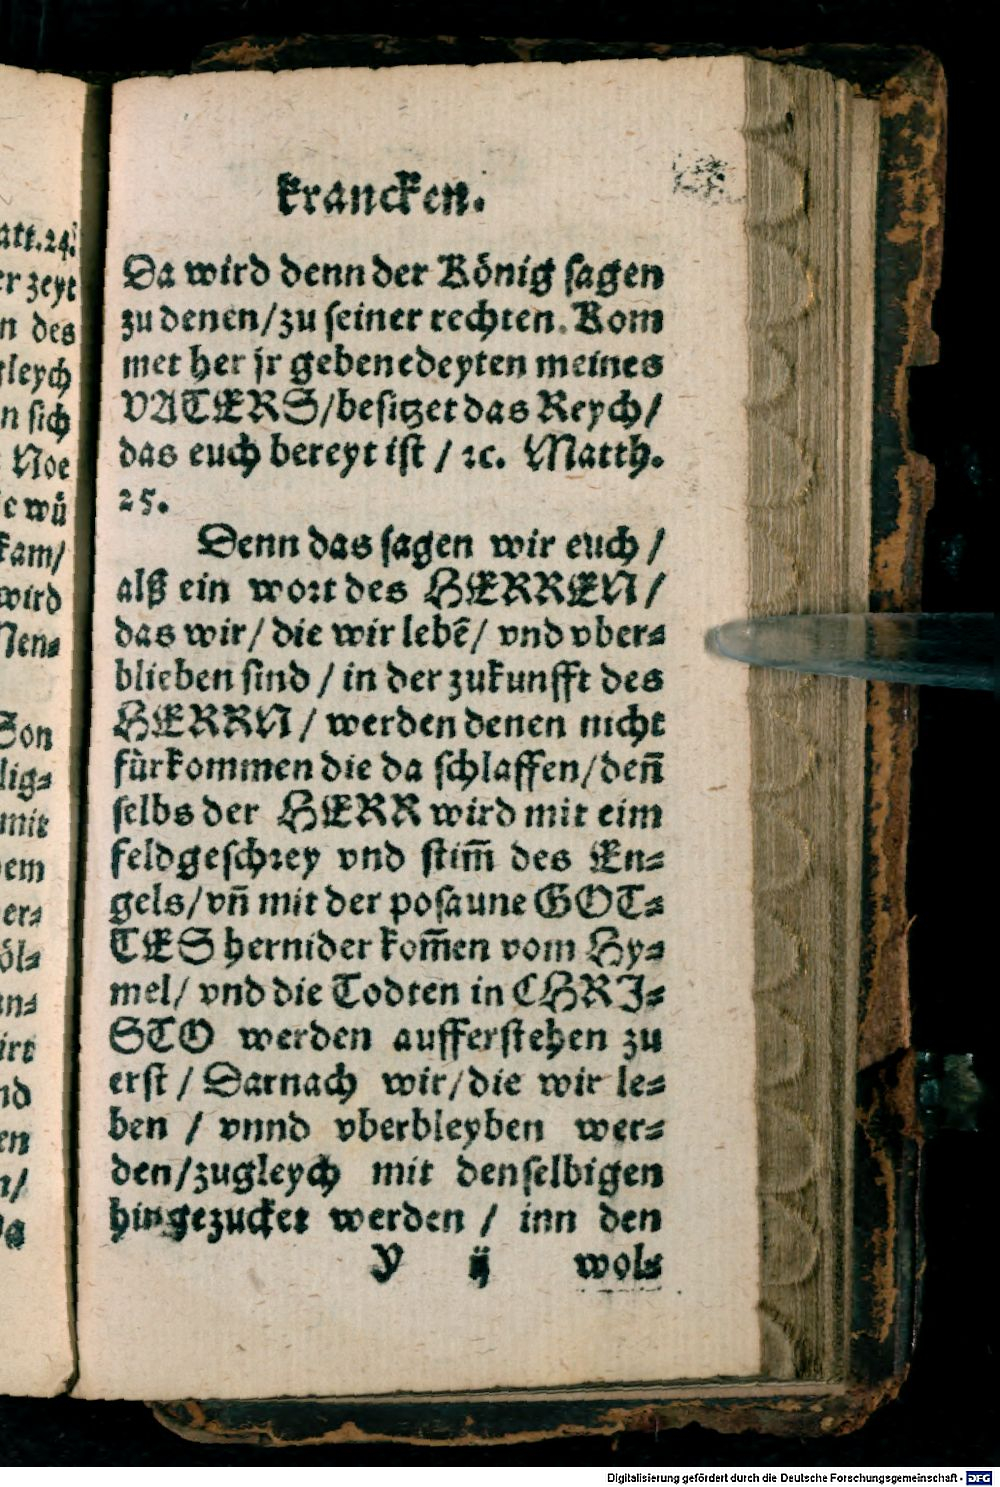 att.24.
er zeyt
n des
gleych
n sich
Noe
ie wů
kam/
wird
Men⸗
Son
lig⸗
mit
dem
er⸗
öl⸗
an⸗
irt
nd
en
n/
Da
krancken.
Da wird denn der König sagen
zu denen/zu seiner rechten. Kom
met her jr gebenedeyten meines
VATERS/besitzet das Reych/
das euch bereyt ist / ꝛc. Matth.
25.
Denn das sagen wir euch /
alß ein wort des HERREN/
das wir/ die wir lebẽ/ vnd vber⸗
blieben sind / in der zukunfft des
HERRN / werden denen nicht
fürkommen die da schlaffen/deñ
selbs der HERR wird mit eim
feldgeschrey vnd stim̃ des En⸗
gels/vñ mit der posaune GOT⸗
TES hernider kom̃en vom Hy⸗
mel/ vnd die Todten in CHRI⸗
STO werden aufferstehen zu
erst / Darnach wir/die wir le⸗
ben / vnnd vberbleyben wer⸗
den/zugleych mit denselbigen
hingezucket werden / inn den
Y ij wol⸗
Digitalisierung gefördert durch die Deutsche Forschungsgemeinschaft - DFG